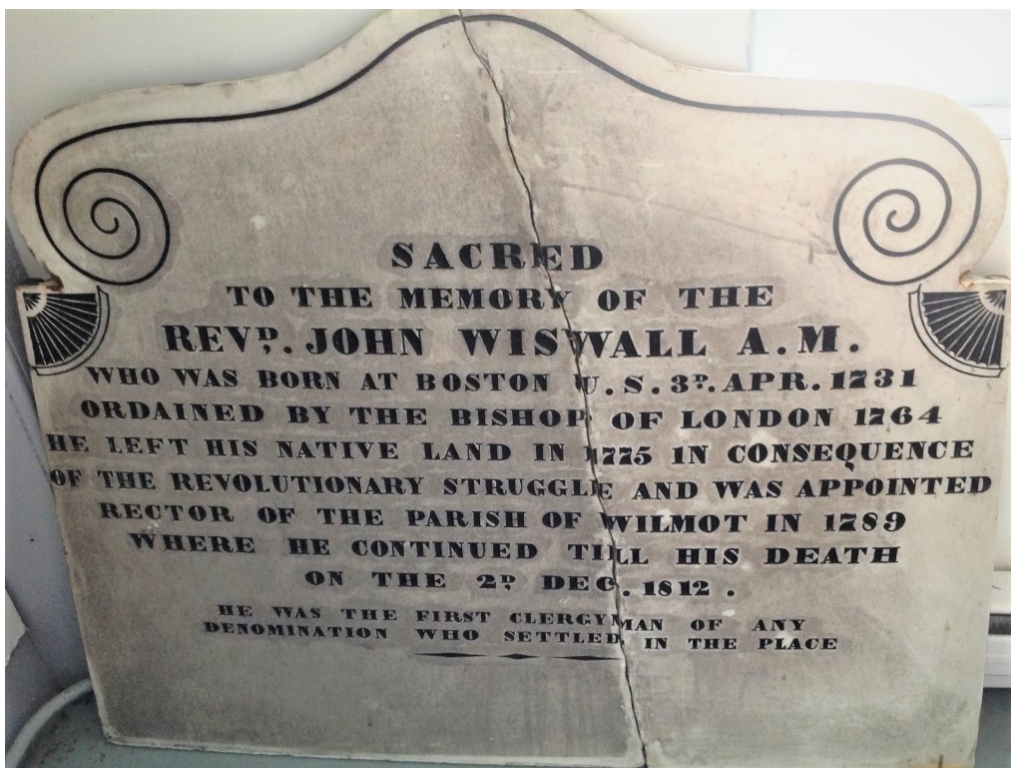 SACRED
TO THE MEMORY OF THE
REVD. JOHN WISWALL A.M.
WHO WAS BORN AT BOSTON U.S. 3D. APR. 1731
ORDAINED BY THE BISHOP OF LONDON 1764
HE LEFT HIS NATIVE LAND IN 1775 IN CONSEQUENCE
OF THE REVOLUTIONARY STRUGGLE AND WAS APPOINTED
RECTOR OF THE PARISH OF WILMOT IN 1789
WHERE HE CONTINUED TILL HIS DEATH
ON THE 2D DEC. 1812.
HE WAS THE FIRST CLERGYMAN OF ANY
DENOMINATION WHO SETTLED IN THE PLACE